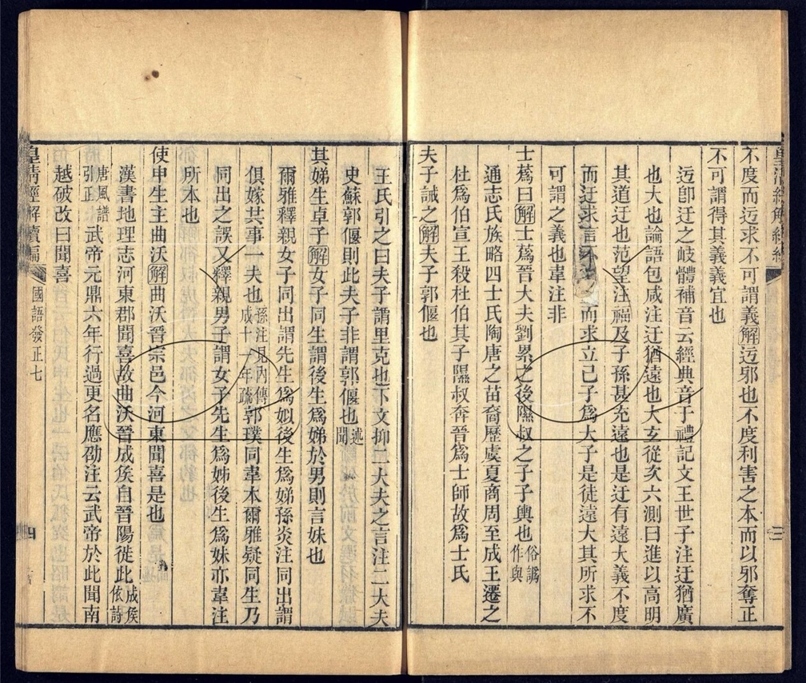 不度而迃求不可謂義解迃邪也不度利害之本而以邪奪正
不可謂得其義義宜也
迃卽迂之岐體補音云經典音于禮記文王世子注迂猶廣
也大也論語包咸注迂猶遠也大玄從次六測曰進以高明
其道迂也范望注福及子孫甚充遠也是迂有遠大義不度
而迂求言不 而求立己子爲大子是徒遠大其所求不
可謂之義也韋注非
士蔿曰解士蔿晉大夫劉累之後隰叔之子子輿也俗譌作與
通志氏族略四士氏陶唐之苗裔歷虞夏商周至成王遷之
杜爲伯宣王殺杜伯其子隰叔奔晉爲士師故爲士氏
夫子誡之解夫子郭偃也
王氏引之曰夫子謂里克也下文抑二大夫之言注二大夫
史蘇郭偃則此夫子非謂郭偃也述聞
其娣生卓子解女子同生謂後生爲娣於男則言妹也
爾雅釋親女子同出謂先生爲姒後生爲娣孫炎注同出謂
俱嫁其事一夫也孫注見內傳成十一年疏郭璞同韋本爾雅疑同生乃
同出之誤又釋親男子謂女子先生爲姊後生爲妹亦韋注
所本也
使申生主曲沃解曲沃晉宗邑今河東聞喜是也
漢書地理志河東郡聞喜故曲沃晉成矦自晉陽徙此成矦依詩
唐風譜引正武帝元鼎六年行過更名應劭注云武帝於此聞南
越破改曰聞喜
皇淸經解續編
國語發正七
四